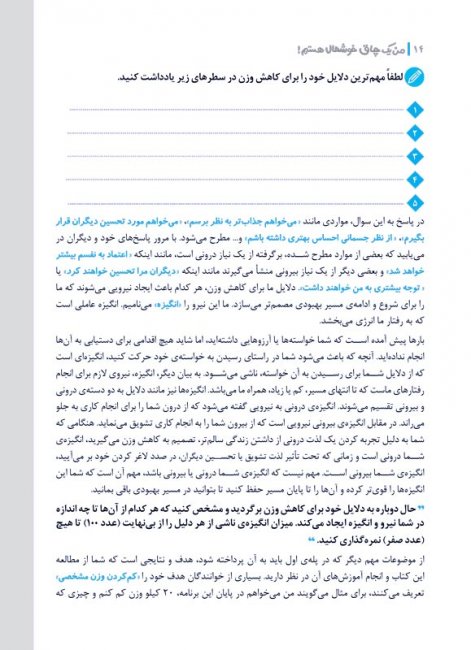 ۱۴ | من یک چاق خوشحال هستم!
لطفاً مهم‌ترین دلایل خود را برای کاهش وزن در سطرهای زیر یادداشت کنید.
۱
۲
۳
۴
۵
در پاسخ به این سوال، مواردی مانند «می‌خواهم جذاب‌تر به نظر برسم»، «می‌خواهم مورد تحسین دیگران قرار
بگیرم»، « از نظر جسمانی احساس بهتری داشته باشم» و... مطرح می‌شود. با مرور پاسخ‌های خود و دیگران در
می‌یابید که بعضی از موارد مطرح شده، برگرفته از یک نیاز درونی است، مانند اینکه «اعتماد به نفسم بیشتر
خواهد شد» و بعضی دیگر از یک نیاز بیرونی منشأ می‌گیرند مانند اینکه «دیگران مرا تحسین خواهند کرد» یا
« توجه بیشتری به من خواهند داشت». دلایل ما برای کاهش وزن، هر کدام باعث ایجاد نیرویی می‌شوند که ما
را برای شروع و ادامه‌ی مسیر بهبودی مصمم‌تر می‌سازد. ما این نیرو را «انگیزه» می‌نامیم. انگیزه عاملی است
که به رفتار ما انرژی می‌بخشد.
بارها پیش آمده است که شما خواسته‌ها یا آرزوهایی داشته‌اید، اما شاید هیچ اقدامی برای دستیابی به آن‌ها
انجام نداده‌اید. آنچه که باعث می‌شود شما در راستای رسیدن به خواسته‌ی خود حرکت کنید، انگیزه‌ای است
که از دلایل شما برای رسیدن به آن خواسته، ناشی می‌شود. به بیان دیگر، انگیزه، نیروی لازم برای انجام
رفتارهای ماست که تا انتهای مسیر، کم یا زیاد، همراه ما می‌باشد. انگیزه‌ها نیز مانند دلایل به دو دسته‌ی درونی
و بیرونی تقسیم می‌شوند. انگیزه‌ی درونی به نیرویی گفته می‌شود که از درون شما را برای انجام کاری به جلو
می‌راند. در مقابل انگیزه‌ی بیرونی نیرویی است که از بیرون شما را به انجام کاری تشویق می‌نماید. هنگامی که
شما به دلیل تجربه کردن یک لذت درونی از داشتن زندگی سالم‌تر، تصمیم به کاهش وزن می‌گیرید، انگیزه‌ی
شما درونی است و زمانی که تحت تأثیر لذت تشویق یا تحسین دیگران، در صدد لاغر کردن خود بر می‌آیید،
انگیزه‌ی شما بیرونی است. مهم نیست که انگیزه‌ی شما درونی یا بیرونی باشد، مهم آن است که شما این
انگیزه‌ها را قوی‌تر کرده و آن‌ها را تا پایان مسیر حفظ کنید تا بتوانید در مسیر بهبودی باقی بمانید.
” حال دوباره به دلایل خود برای کاهش وزن برگردید و مشخص کنید که هر کدام از آن‌ها تا چه اندازه
در شما نیرو و انگیزه ایجاد می‌کند. میزان انگیزه‌ی ناشی از هر دلیل را از بی‌نهایت (عدد ۱۰۰) تا هیچ
(عدد صفر) نمره‌گذاری کنید. “
از موضوعات مهم دیگر که در پله‌ی اول باید به آن پرداخته شود، هدف و نتایجی است که شما از مطالعه
این کتاب و انجام آموزش‌های آن در نظر دارید. بسیاری از خوانندگان هدف خود را «کم‌کردن وزن مشخصی»
تعریف می‌کنند، برای مثال می‌گویند من می‌خواهم در پایان این برنامه، ۲۰ کیلو وزن کم کنم و چیزی که